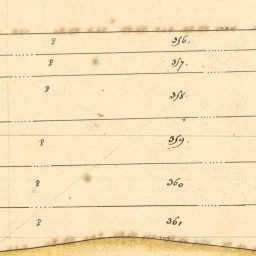 P 356.
P 357.
P 358.
P 359.
P 360
P 361